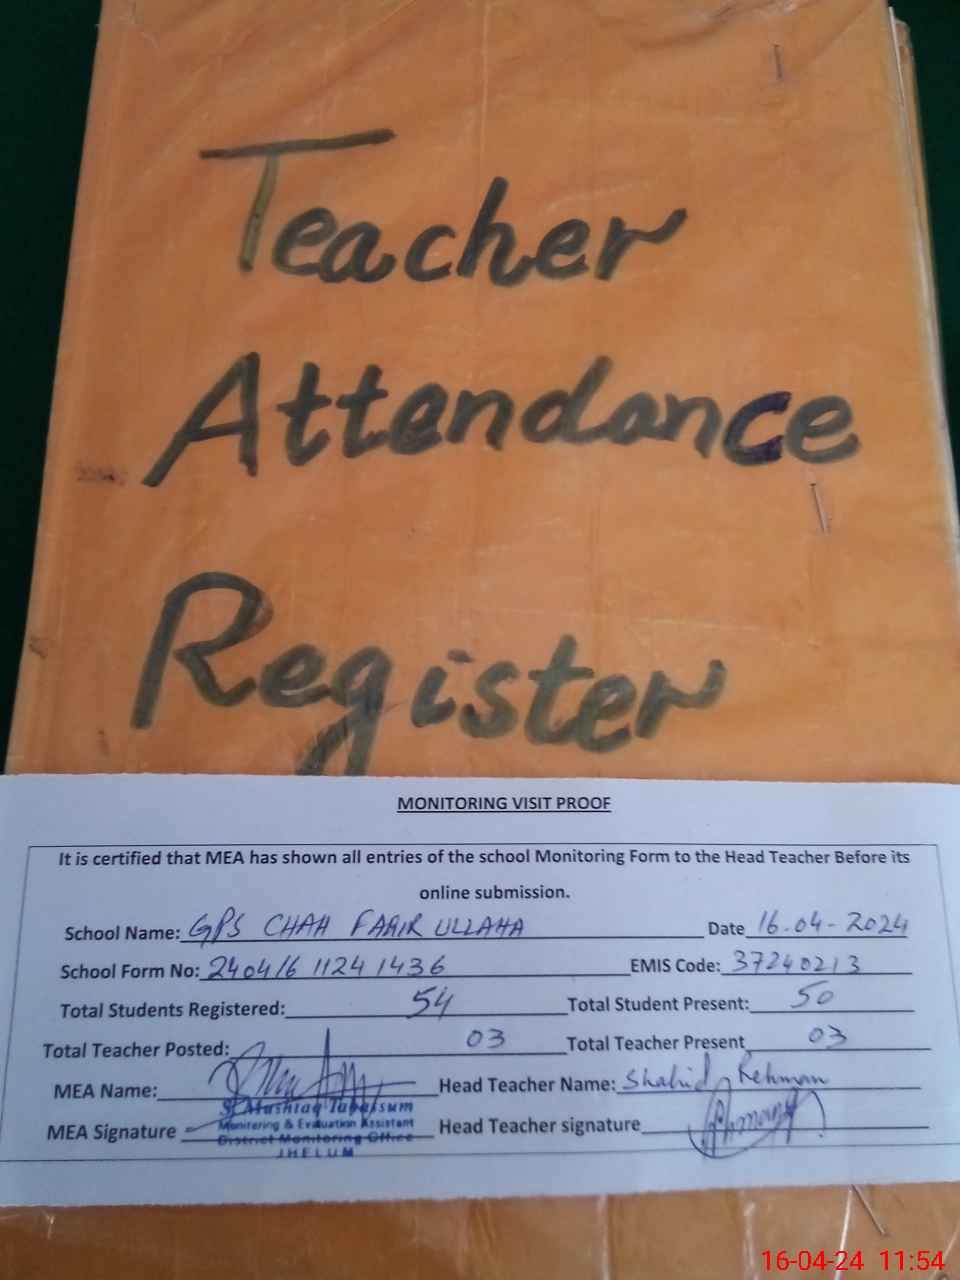 Teacher
Attendance
Register
MONITORING VISIT PROOF
It is certified that MEA has shown all entries of the school Monitoring Form to the Head Teacher Before its
online submission.
School Name: GPS CHAH FAKIR ULLAHA Date 16-04-2024
School Form No: 240416 1124 1436 EMIS Code: 37240213
Total Students Registered: 54 Total Student Present: 50
Total Teacher Posted: 03 Total Teacher Present 03
MEA Name: Head Teacher Name: Shahid Rehman
Mushtaq Tabassum
Monitoring & Evaluation Assistant
MEA Signature Head Teacher signature
District Monitoring Office
JHELUM
16-04-24 11:54